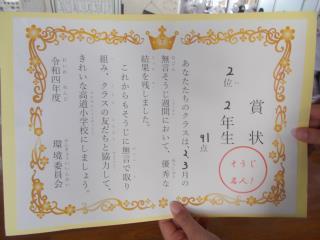 賞状
2位 2年生
91点
あなたたちのクラスは、2、3月の
無言そうじ週間において、優秀な
結果を残しました。
これからもそうじに無言で取り
組み、クラスの友だちと協力して、
きれいな高道小学校にしましょう。
令和四年度 環境委員会
そうじ
名人！